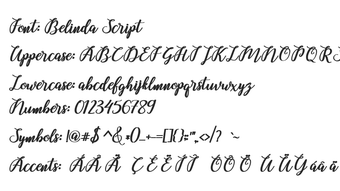 Font: Belinda Script
Uppercase: ABCDEFGHIJKLMNOPQRS
Lowercase: abcdefghijklmnopqrstuvwxyz
Numbers: 0123456789
Symbols: !@#$ ^&
Accents: